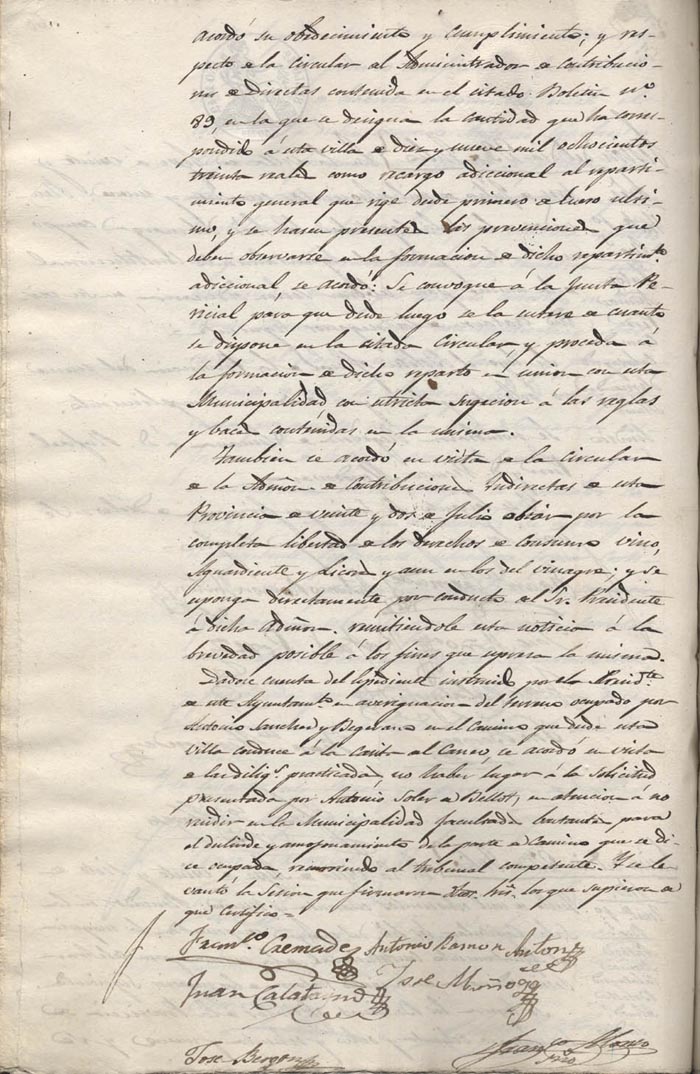 acordó su obedecimiento y cumplimiento; y res-
pecto de la circular del Administrador de Contribucio-
nes Directas contenida en el citado Boletin nº
89, en la que se designa la cantidad que ha corres-
pondido á esta villa de diez y nueve mil ochocientos
treinta reales como recargo adiccional al reparti-
miento general que rige desde primero de Enero ulti-
mo, y se hacen presentes las prevenciones que
deben observarse en la formacion de dicho repartimto
adiccional se acordó: Se convoque á la Junta Pe-
ricial para que desde luego se la entere de cuanto
se dispone en la citada Circular, y proceda á
la formacion de dicho reparto en union con esta
Municipalidad con estricta sugecion á las reglas
y bases contenidas en la misma.
Tambien se acordó en vista de la circular
de la Admon de Contribuciones Indirectas de esta
Provincia de veinte y dos de Julio obtar por la
completa libertad de los derechos de Consumo vino,
Aguardiente y Licores y aun en los del vinagre; y se
esponga directamente por conducto del Sr. Presidente
á dicha Admon. remitiendole esta noticia á la
brevedad posible á los fines que espresa la misma.
Dadose cuenta del Espediente instruido por la Presidte
de este Ayuntamto en averiguacion del terreno ocupado por
Antonio Sanchez y Begerano en el Camino que desde esta
villa conduce á la Casita del Caneo, se acordó en vista
de las diligs practicadas, no haber lugar á la Solicitud
presentada por Antonio Soler de Bellot, en atencion á no
residir en la Municipalidad facultades bastantes para
el deslinde y amojonamiento de la parte de Camino que se di-
ce ocupada, recurriendo al tribunal competente. Y se le-
vantó la Sesion que firmaron dhos. Sres. los que supieron de
que Certifico=
Franco Cremades Antonio Ramon Anton
Juan Calatayud Jose Moño
Jose Bergon Franco Alonso